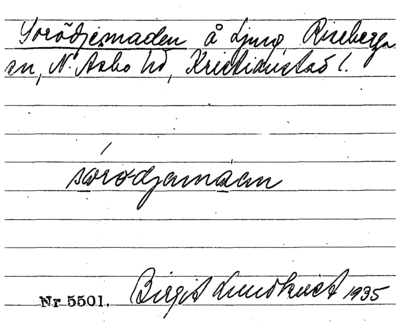 Sorödjesmaden å Ljung Riseberga
sn, N. Åsbo hd, Kristianstad l.
sórodjamáen
Nr 5501. Birgit Lundkvist 1935